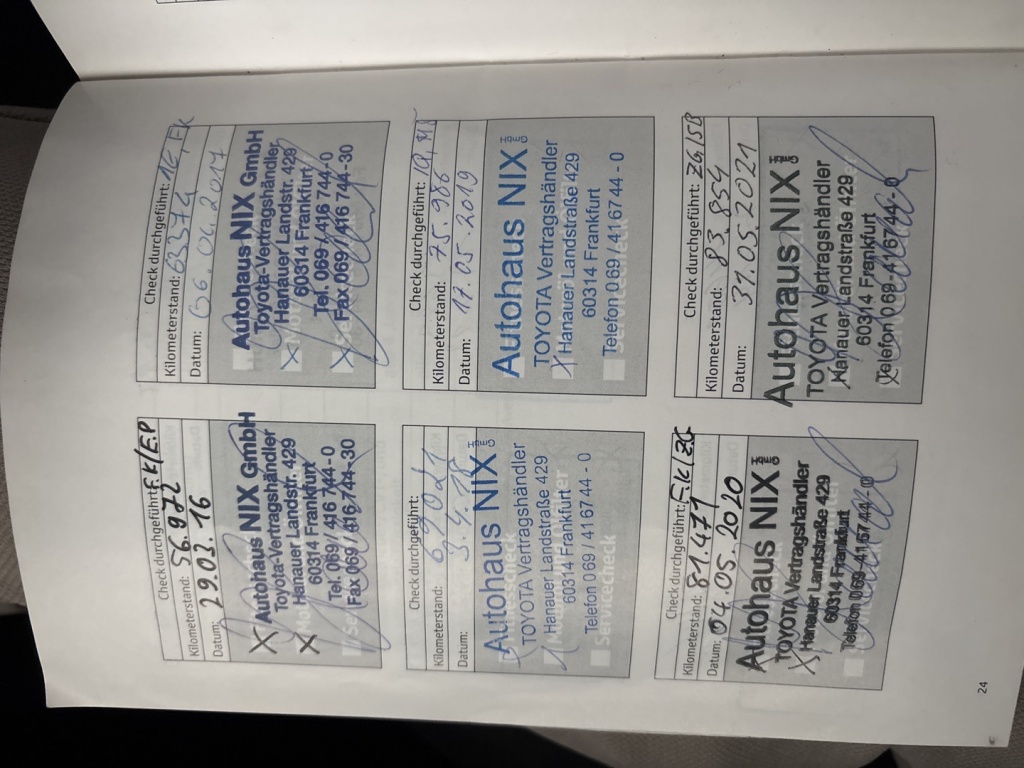 Check durchgeführt: F.K/E.P
Kilometerstand: 56.972
Datum: 29.03.16
Autohaus NIX GmbH
Toyota-Vertragshändler
Hanauer Landstr. 429
60314 Frankfurt
Tel. 069 / 416 744-0
Fax 069 / 416 744-30
Check durchgeführt:
Kilometerstand: 63374
Datum: 06.04.2017
Autohaus NIX GmbH
Toyota-Vertragshändler
Hanauer Landstr. 429
60314 Frankfurt
Tel. 069 / 416 744-0
Fax 069 / 416 744-30
Check durchgeführt:
Kilometerstand:
Datum: 3.4.18
Autohaus NIX GmbH
TOYOTA Vertragshändler
Hanauer Landstraße 429
60314 Frankfurt
Telefon 069 / 41 67 44 - 0
Servicecheck
Check durchgeführt:
Kilometerstand: 75.986
Datum: 17.05.2019
Autohaus NIX GmbH
TOYOTA Vertragshändler
Hanauer Landstraße 429
60314 Frankfurt
Telefon 069 / 41 67 44 - 0
Servicecheck
Check durchgeführt: F.K/ZG
Kilometerstand: 81.471
Datum: 04.05.2020
Autohaus NIX GmbH
TOYOTA Vertragshändler
Hanauer Landstraße 429
60314 Frankfurt
Telefon 069-41 67 44-0
Check durchgeführt: ZG/SB
Kilometerstand: 83.854
Datum: 31.05.2021
Autohaus NIX GmbH
TOYOTA Vertragshändler
Hanauer Landstraße 429
60314 Frankfurt
Telefon 069-41 67 44-0
24